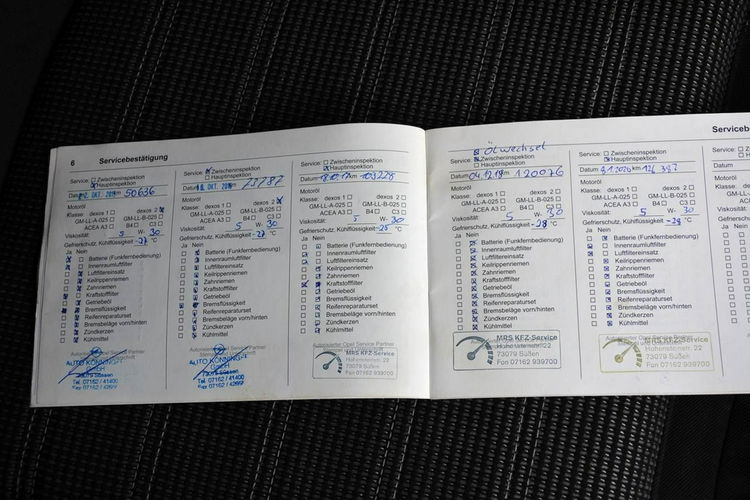 6 Servicebestätigung
Service: Zwischeninspektion
Hauptinspektion
50636
Motoröl
Klasse: dexos 1 dexos 2
GM-LL-A-025 GM-LL-B-025
ACEA A3 B4 C3
Viskosität: 5 W- 30
Gefrierschutz, Kühlflüssigkeit °C
Ja Nein
Batterie (Funkfernbedienung)
Innenraumluftfilter
Luftfiltereinsatz
Keilrippenriemen
Zahnriemen
Kraftstofffilter
Getriebeöl
Bremsflüssigkeit
Reifenreparaturset
Bremsbeläge vorn/hinten
Zündkerzen
Kühlmittel
AUTO KÖNNINGER
GmbH
73079 Süssen
Tel. 07162 / 41400
Service: Zwischeninspektion
Hauptinspektion
73787
Motoröl
Klasse: dexos 1 dexos 2
GM-LL-A-025 GM-LL-B-025
ACEA A3 B4 C3
Viskosität: 5 W- 30
Gefrierschutz, Kühlflüssigkeit -27 °C
Ja Nein
Batterie (Funkfernbedienung)
Innenraumluftfilter
Luftfiltereinsatz
Keilrippenriemen
Zahnriemen
Kraftstofffilter
Getriebeöl
Bremsflüssigkeit
Reifenreparaturset
Bremsbeläge vorn/hinten
Zündkerzen
Kühlmittel
73079 Süssen
Tel. 07162 / 41400
Service: Zwischeninspektion
Hauptinspektion
Datum km 103228
Motoröl
Klasse: dexos 1 dexos 2
GM-LL-A-025 GM-LL-B-025
ACEA A3 B4 C3
Viskosität: 5 W- 30
Gefrierschutz, Kühlflüssigkeit -25 °C
Ja Nein
Batterie (Funkfernbedienung)
Innenraumluftfilter
Luftfiltereinsatz
Keilrippenriemen
Zahnriemen
Kraftstofffilter
Getriebeöl
Bremsflüssigkeit
Reifenreparaturset
Bremsbeläge vorn/hinten
Zündkerzen
Kühlmittel
MRS KFZ-Service
73079 Süßen
Fon 07162 939700
Ölwechsel
Service: Zwischeninspektion
Hauptinspektion
Datum 04.12.18 km 120076
Motoröl
Klasse: dexos 1 dexos 2
GM-LL-A-025 GM-LL-B-025
ACEA A3 B4 C3
Viskosität: 5 W- 30
Gefrierschutz, Kühlflüssigkeit -28 °C
Ja Nein
Batterie (Funkfernbedienung)
Innenraumluftfilter
Luftfiltereinsatz
Keilrippenriemen
Zahnriemen
Kraftstofffilter
Getriebeöl
Bremsflüssigkeit
Reifenreparaturset
Bremsbeläge vorn/hinten
Zündkerzen
Kühlmittel
MRS KFZ-Service
73079 Süßen
Fon 07162 939700
Service: Zwischeninspektion
Hauptinspektion
Datum km
Motoröl
Klasse: dexos 1 dexos 2
GM-LL-A-025 GM-LL-B-025
ACEA A3 B4 C3
Viskosität: 5 W- 30
Gefrierschutz, Kühlflüssigkeit °C
Ja Nein
Batterie (Funkfernbedienung)
Innenraumluftfilter
Luftfiltereinsatz
Keilrippenriemen
Zahnriemen
Kraftstofffilter
Getriebeöl
Bremsflüssigkeit
Reifenreparaturset
Bremsbeläge vorn/hinten
Zündkerzen
Kühlmittel
MRS KFZ-Service
73079 Süßen
Fon 07162 939700
Serviceb
Service:
Datum
Motoröl
Klasse:
Viskosität:
Gefrierschutz
Ja Nein